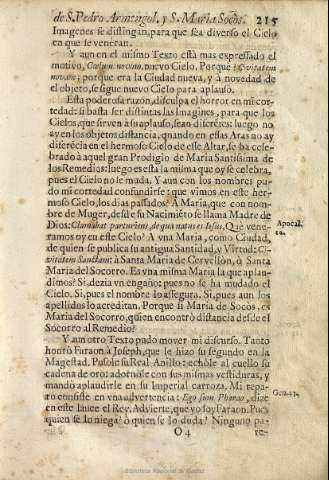 de S. Pedro Armengol, y S. Maria Socòs. 215
Imagenes se distingan, para que sea diverso el Cielo
en que se veneran.
Y aun en el mismo Texto està mas expressado el
motivo, Cœlum novum, nuevo Cielo. Porque? Civitatem
novam; porque era la Ciudad nueva, y à novedad de
el objeto, se sigue nuevo Cielo para aplauso.
Esta poderosa razon, disculpa el horror en mi cor-
tedad: si basta ser distintas las Imagines, para que los
Cielos, que sirven à su aplauso, sean diversos: luego no
ay en los objetos distancia, quando en essas Aras no ay
diferēcia en el hermoso Cielo de esse Altar, se ha cele-
brado à aquel gran Prodigio de Maria Santissima de
los Remedios: luego es esta la misma que oy se celebra,
pues el Cielo no le muda. Y aun con los nombres pu-
do mi cortedad confundirse; que vimos en este her-
moso Cielo, los dias passados? A Maria, que con nom-
bre de Muger, desde su Nacimiēto se llama Madre de
Dios: Clamabat parturiens, de qua natus est Iesus. Què vene-
ramos oy en este Cielo? A vna Maria, como Ciudad,
de quien se publica su antigua Santidad, y Virtud: Ci-
vitatem Sanctam: à Santa Maria de Cervellòn, ò Santa
Maria del Socorro. Es vna misma Maria la que aplau-
dimos? Si, dezia vn engaño; pues no se ha mudado el
Cielo. Si, pues el nombre lo assegura. Si, pues aun los
apellidos lo acreditan. Porque si Maria de Socòs, es
Maria del Socorro, quien encontrò distancia desde el
Socorro al Remedio?
Y aun otro Texto pudo mover mi discurso. Tanto
honrò Faraon à Joseph, que le hizo su segundo en la
Magestad. Pusole su Real Anillo: echòle al cuello su
cadena de oro: adornòle con sus mismas vestiduras, y
mandò aplaudirle en su Imperial carroza. Mi repa-
ro consiste en vna advertencia: Ego sum Pharao, dize
en este lance el Rey. Advierte, que yo soy Faraon. Pues
quien se lo niega? ò quien se lo duda? Ninguno pa-
O 4 re-
Apocal.
Genes. 41.
Biblioteca Nacional de España